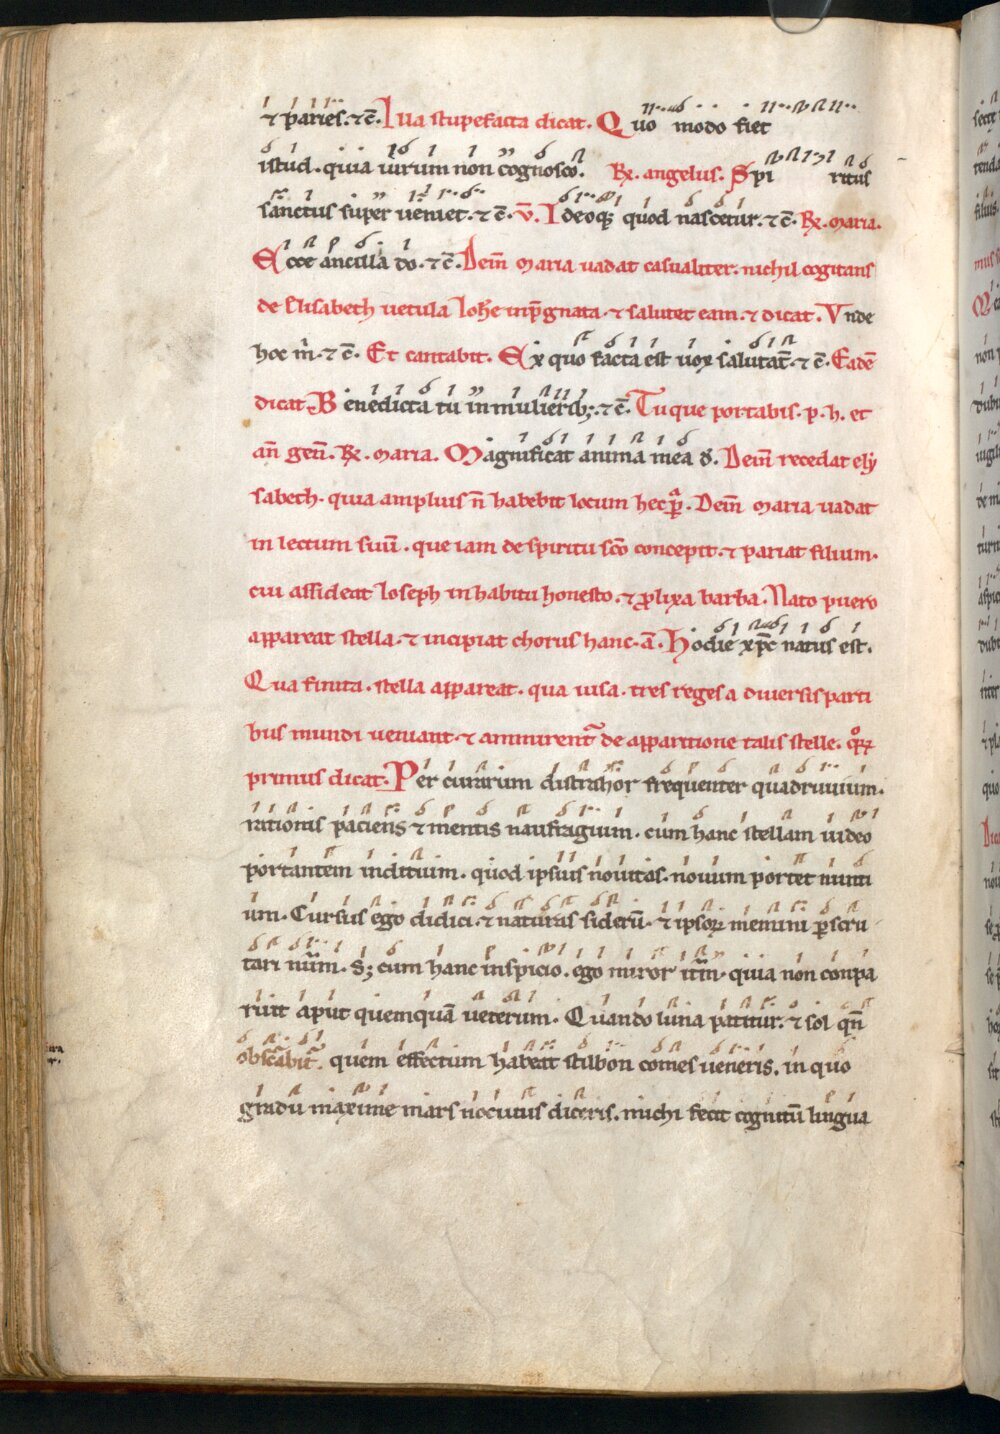 ⁊ paries. ⁊ c̄. Illa stupefacta dicat. Quo modo fiet
istud. quia uirum non cognosco. ℞. angelus. Spiritus
sanctus super ueniet. ⁊ c̄. v̄. Ideoq; quod nascetur. ⁊ c̄. ℞. maria.
Ecce ancilla do. ⁊ c̄. Deīn maria uadat casualiter. nichil cogitans
de Elisabeth uetula Ioh̄e inp̄gnata. ⁊ salutet eam. ⁊ dicat. Vnde
hoc m̄. ⁊ c̄. Et cantabit. Ex quo facta est uox salutat̄. ⁊ c̄. Eadē
dicat. Benedicta tu in mulierib;. ⁊ c̄. Tu que portabis. p. h. et
an̄ gen̄. ℞. maria. Magnificat anima mea d̄. Deīn recedat ely
sabeth. quia amplius n̄ habebit locum hec p̄. Deīn maria uadat
in lectum suū. que iam de spiritu sc̄o concepit. ⁊ pariat filium.
cui assideat Ioseph in habitu honesto. ⁊ plixa barba. Nato puero
appareat stella. ⁊ incipiat chorus hanc. ā. Hodie xp̄c natus est.
Qua finita. stella appareat. qua uisa. tres reges a diuersis parti
bus mundi ueniant. ⁊ ammirent̄ de apparitione talis stelle. quoꝝ
primus dicat. Per curarum distrahor frequenter quadruuium.
rationis paciens ⁊ mentis naufragium. cum hanc stellam uideo
portantem inditium. quod ipsius nouitas. nouum portet nunti
um. Cursus ego didici. ⁊ naturas siderū. ⁊ ipsoꝝ memini pscru
tari num̄. Sꝫ cum hanc inspicio. ego miror it̄m. quia non conpa
ruit aput quemquā ueterum. Quando luna patitur. ⁊ sol qn̄
obscābit̄. quem effectum habeat stilbon comes ueneris. in quo
gradu maxime mars nociuus diceris. michi fecit cognitū lingua